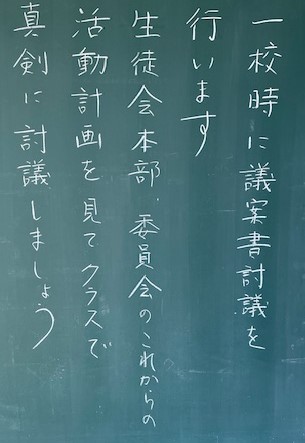 一校時に議案書討議を
行います
生徒会本部、委員会のこれからの
活動計画を見てクラスで
真剣に討議しましょう